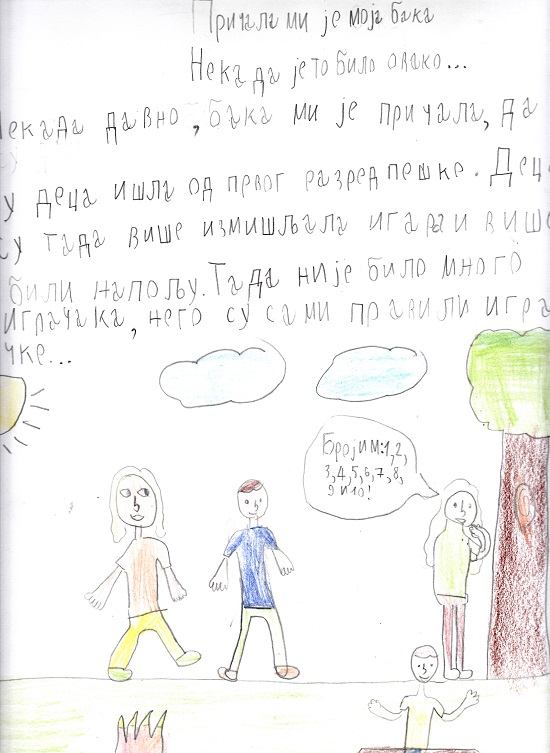 Причала ми је моја бака
Некада је то било овако...
Некада давно, бака ми је причала, да
су деца ишла од првог разред пешке. Деца
су тада више измишљала игара и више
били напољу. Тада није било много
играчака, него су сами правили игра
чке...
Бројим:1,2,
3,4,5,6,7,8,
9 и 10!